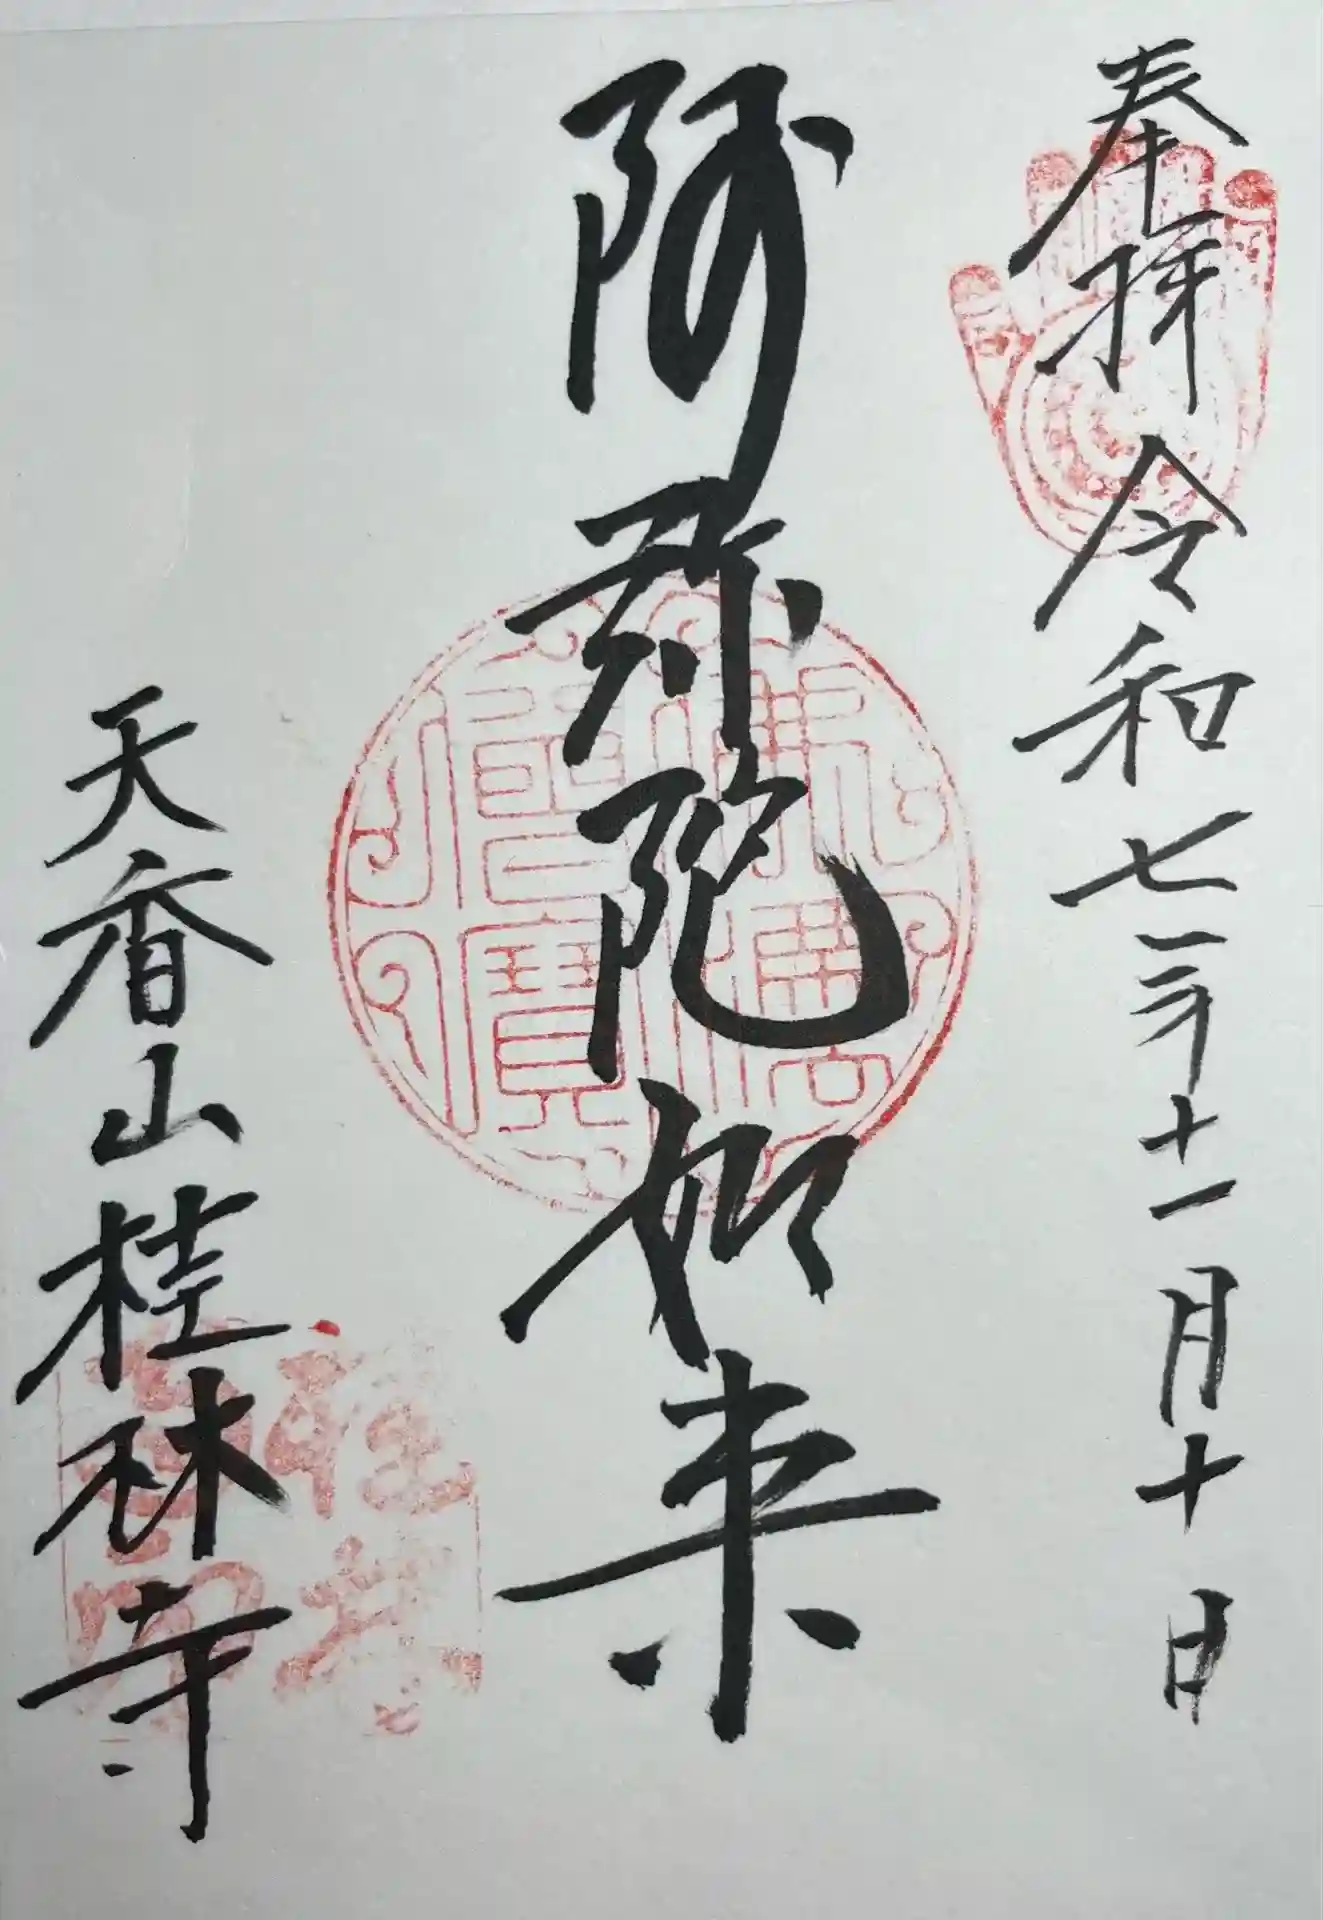 奉拝 令和七年十一月十日
阿弥陀如来
天香山桂林寺
佛法僧寶